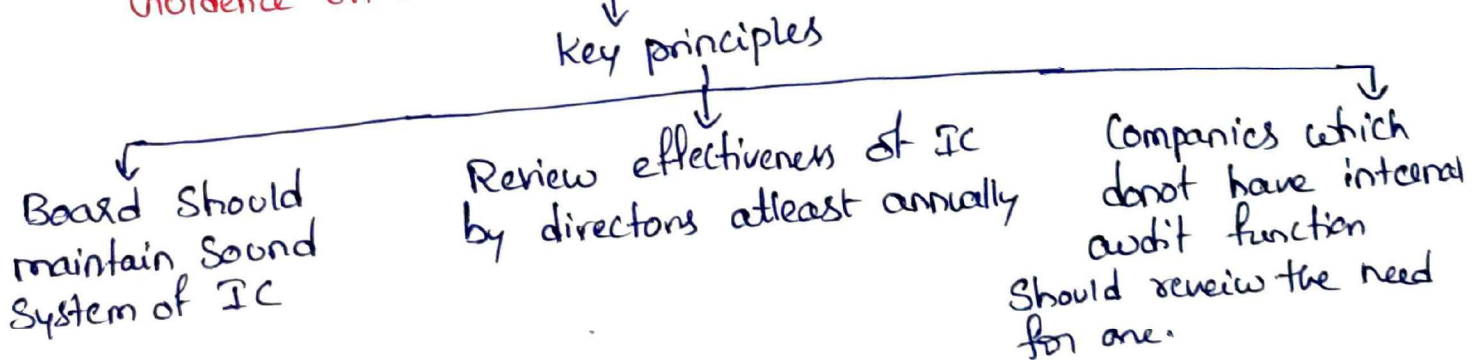 key principles
Board Should
maintain Sound
System of IC
Review effectiveness of IC
by directors atleast annually
Companies which
donot have internal
audit function
Should reveiw the need
for one.